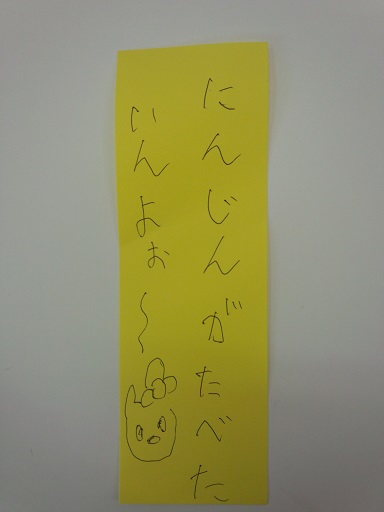 にんじんがたべた
いんよぉ〜